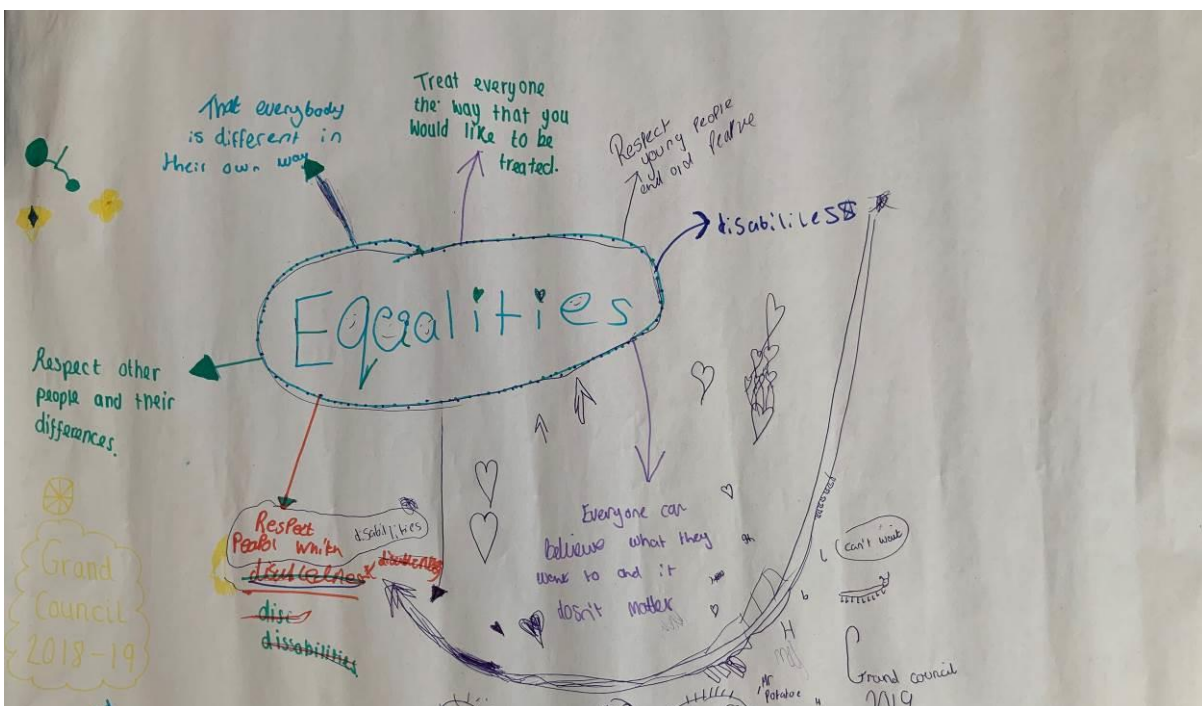 That everybody
is different in
their own way
Treat everyone
the way that you
would like to be
treated.
Respect
young people
and old
disabilities
Equalities
Respect other
people and their
differences.
Respect
disabilities
Everyone can
believe what they
want to and it
dosn't matter
can't wait
Grand
Council
2018-19
Grand council
2019
Mr
Potatoe